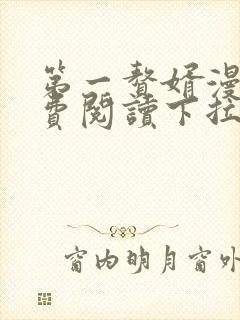 第一赘婿漫
費閱讀下拉
窗内明月窗外